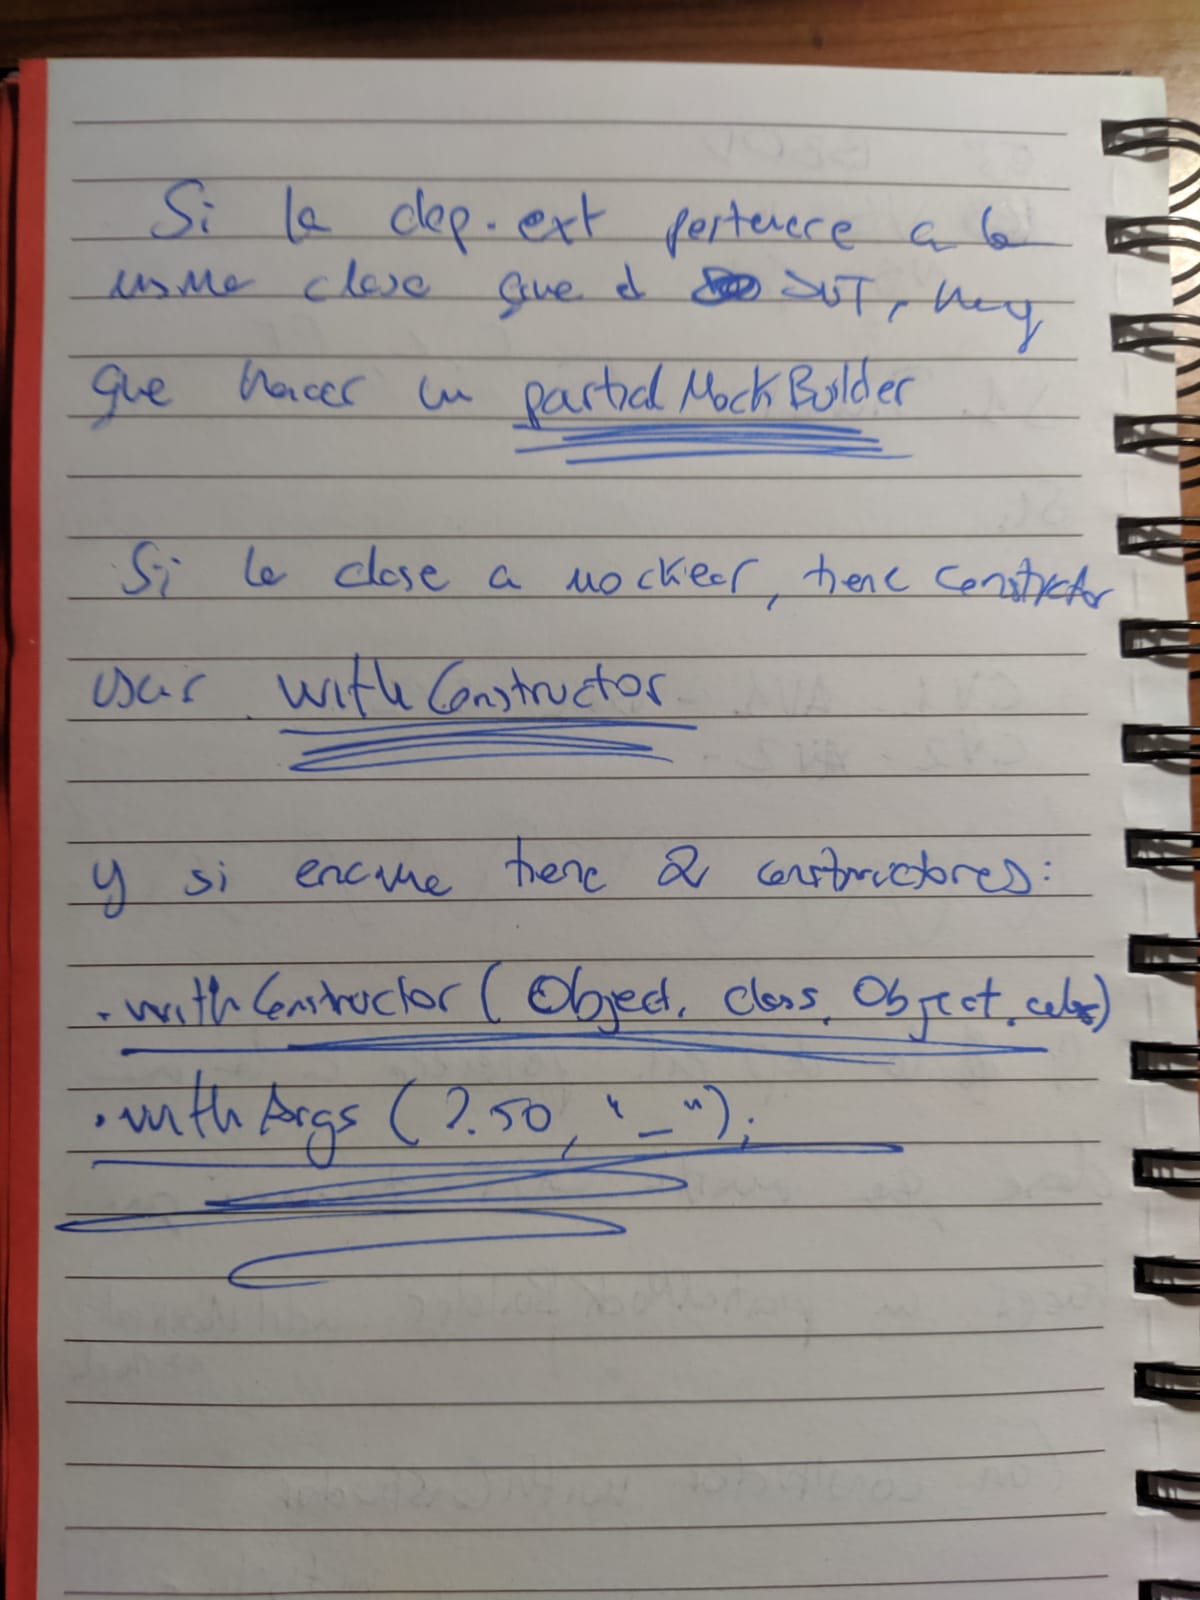 Si la dep. ext pertenece a la
misma clase que el SUT, hay
que hacer un partialMockBuilder
Si la clase a mockear, tiene constructor
usar withConstructor
y si encima tiene 2 constructores:
.withConstructor( Object. class, Object.
.withArgs ( 2.50, "_");